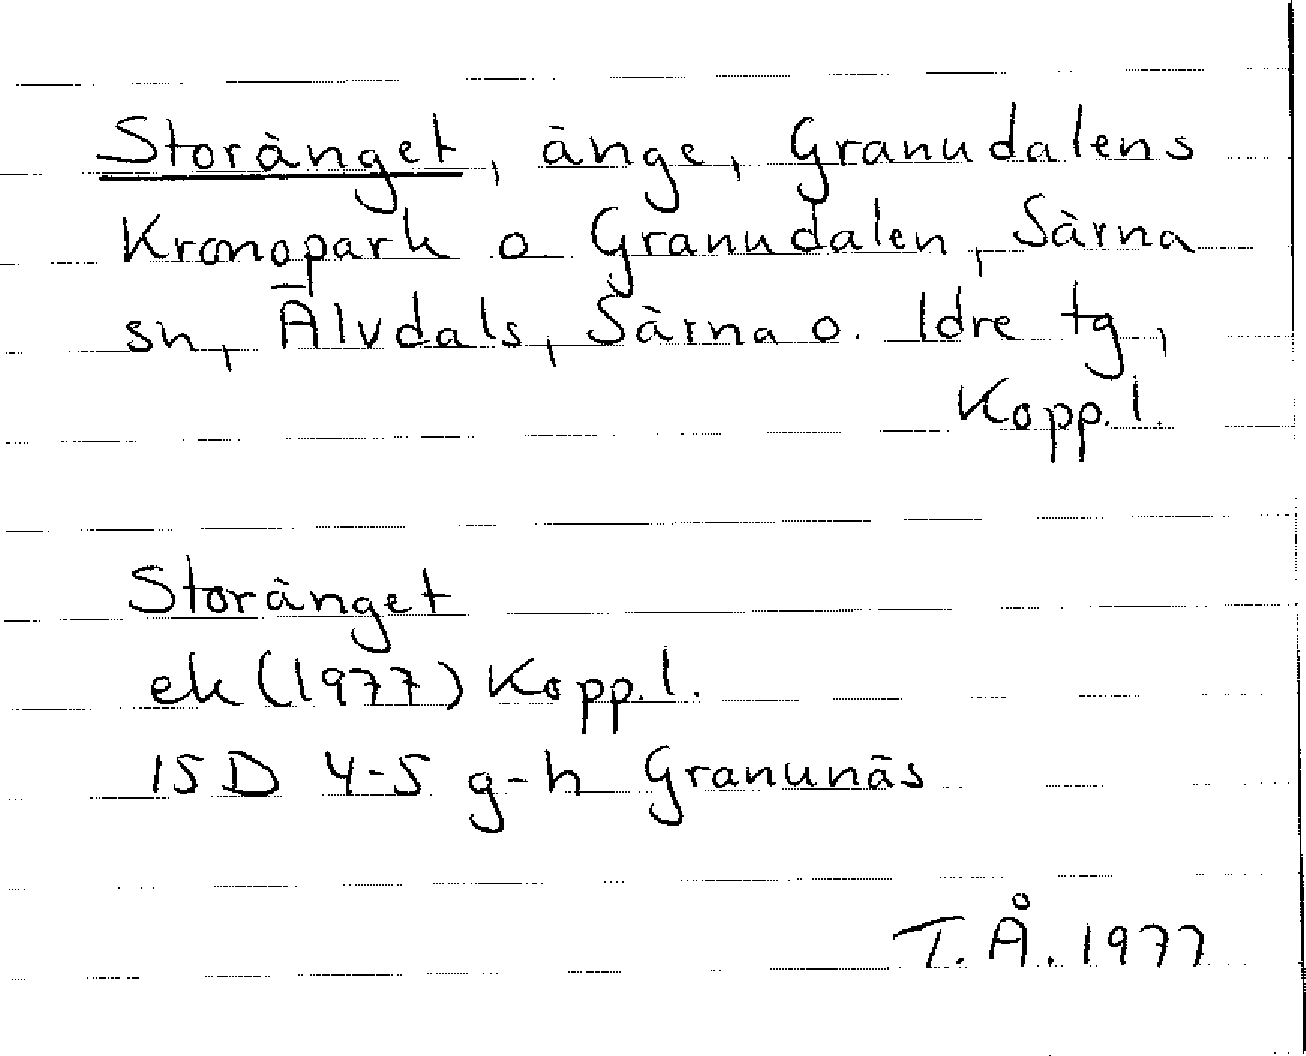 Storänget, änge, Granudalens
Kronopark o Granudalen, Särna
sn, Älvdals, Särna o. Idre tg,
Kopp. l.
Storänget
ek (1977) Kopp. l.
15D 4-5 g-h Granunäs
T. Å. 1977